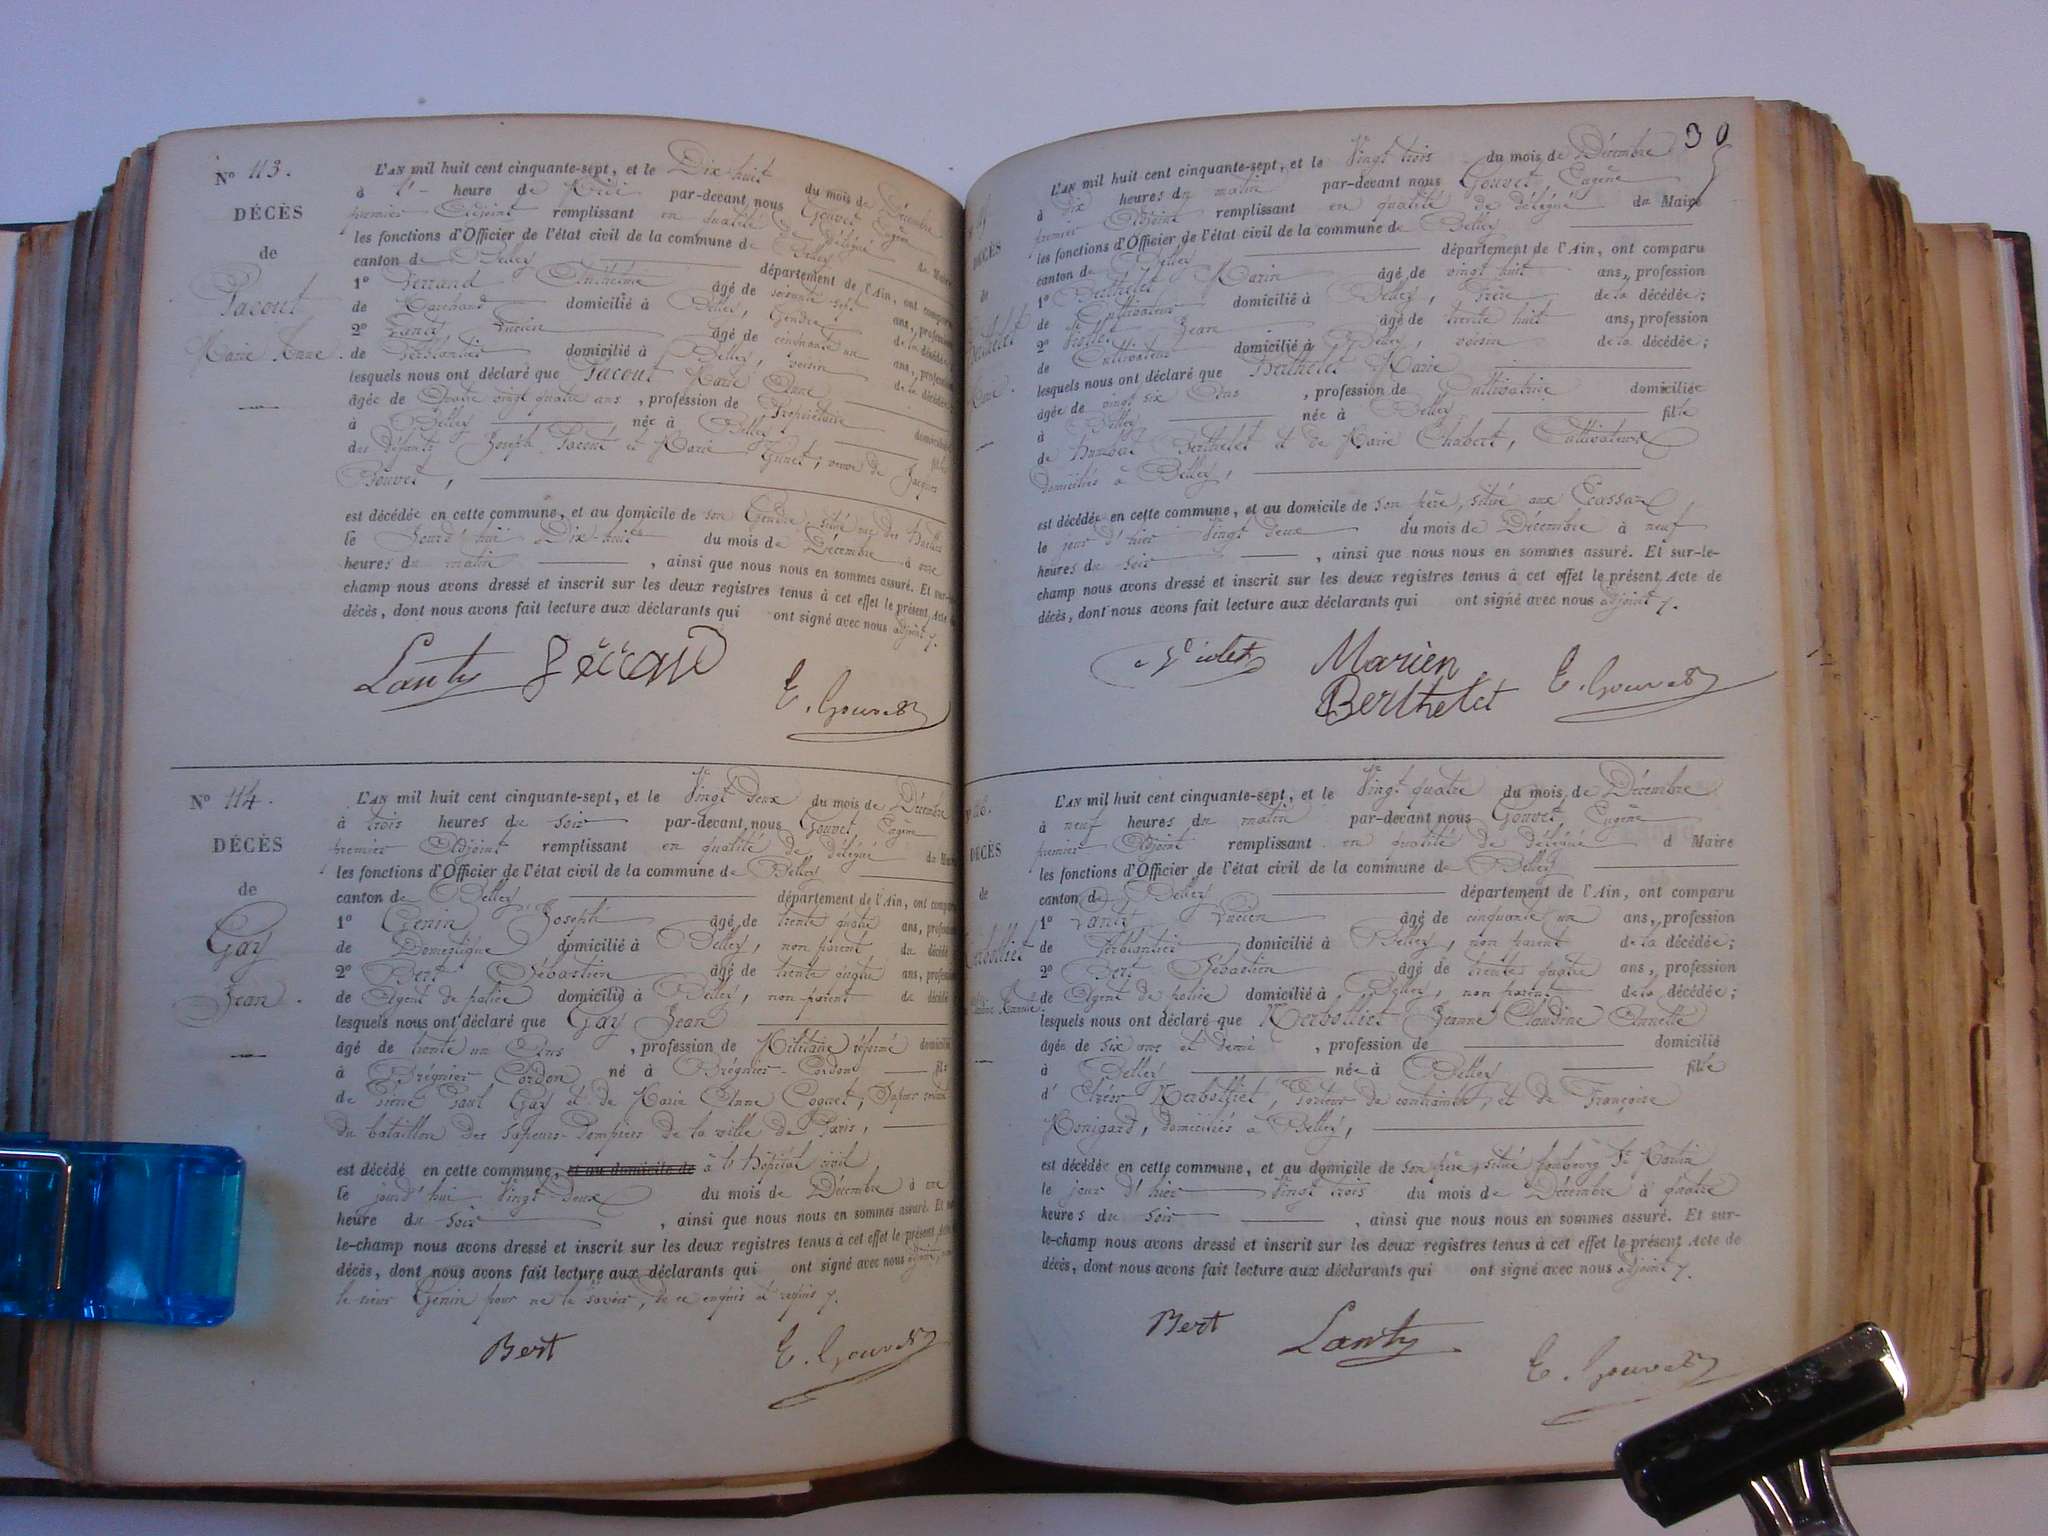 N° 113.
DÉCÈS
de
Pacout
Marie Anne.
L'AN mil huit cent cinquante-sept, et le Dix huit du mois de Décembre
à l' heure de Midi par-devant nous Gouvet Eugène
premier Adjoint remplissant en qualité de délégué du Maire
les fonctions d'Officier de l'état civil de la commune de Belley
canton de Belley département de l'Ain, ont comparu
1° Ferrand Anthelme âgé de soixante sept ans, profession
de Marchand domicilié à Belley, Gendre de la décédée
2° Lanty Lucien âgé de cinquante un ans, profession
de Ferblantier domicilié à Belley, voisin de la décédée
lesquels nous ont déclaré que Pacout Marie Anne
âgée de Quatre vingt quatre ans, profession de Propriétaire domiciliée
à Belley née à Belley fille
des défunts Joseph Pacout et Marie veuve de Jacques
Bouvet,
est décédée en cette commune, et au domicile de son Gendre, situé rue des
le Jourd'hui Dix-huit du mois de Décembre à onze
heures du matin, ainsi que nous nous en sommes assuré. Et sur-le-
champ nous avons dressé et inscrit sur les deux registres tenus à cet effet le présent Acte de
décès, dont nous avons fait lecture aux déclarants qui ont signé avec nous adjoint
Lanty Ferrand
E. Gouvet
N° 114.
DÉCÈS
de
Gay
Jean.
L'AN mil huit cent cinquante-sept, et le Vingt Deux du mois de Décembre
à trois heures du soir par-devant nous Gouvet, Eugène
premier Adjoint remplissant en qualité de délégué du Maire
les fonctions d'Officier de l'état civil de la commune de Belley
canton de Belley département de l'Ain, ont comparu
1° Genin Joseph âgé de trente quatre ans, profession
de Domestique domicilié à Belley, non parent du décédé
2° Bert Sébastien âgé de trente quatre ans, profession
de Agent de police domicilié à Belley, non parent du décédé
lesquels nous ont déclaré que Gay Jean
âgé de trente un Ans, profession de Militaire réformé domicilié
à Brégnier Cordon né à Brégnier-Cordon fils
de Pierre Paul Gay et de Marie Anne Cognet, Sapeur
du bataillon des Sapeurs-Pompiers de la ville de Paris,
est décédé en cette commune, et au domicile de à l'hôpital civil
le jourd'hui Vingt Deux du mois de Décembre à une
heure du soir, ainsi que nous nous en sommes assuré. Et sur-
le-champ nous avons dressé et inscrit sur les deux registres tenus à cet effet le présent Acte de
décès, dont nous avons fait lecture aux déclarants qui ont signé avec nous adjoint, non
le sieur Genin pour ne le savoir, de ce enquis et requis
Bert E. Gouvet
30
DÉCÈS
de
Berthelet
Marie.
L'AN mil huit cent cinquante-sept, et le Vingt trois du mois de Décembre
à dix heures du matin par-devant nous Gouvet Eugène
premier Adjoint remplissant en qualité de délégué du Maire
les fonctions d'Officier de l'état civil de la commune de Belley
canton de Belley département de l'Ain, ont comparu
1° Berthelet Marin âgé de vingt huit ans, profession
de Cultivateur domicilié à Belley, Frère de la décédée;
2° Violet Jean âgé de trente huit ans, profession
de Cultivateur domicilié à Belley, voisin de la décédée;
lesquels nous ont déclaré que Berthelet Marie
âgée de vingt six Ans, profession de Cultivatrice domiciliée
à Belley née à Belley fille
de Humbert Berthelet et de Marie Chabert, Cultivateurs
domiciliés à Belley,
est décédée en cette commune, et au domicile de son père, situé aux Ecassaz
le jour d'hier Vingt deux du mois de Décembre à neuf
heures du soir, ainsi que nous nous en sommes assuré. Et sur-le-
champ nous avons dressé et inscrit sur les deux registres tenus à cet effet le présent Acte de
décès, dont nous avons fait lecture aux déclarants qui ont signé avec nous adjoint
Violet Marien
Berthelet E. Gouvet
DÉCÈS
de
Kerbolliet
L'AN mil huit cent cinquante-sept, et le Vingt quatre du mois de Décembre
à neuf heures du matin par-devant nous Gouvet, Eugène
premier Adjoint remplissant en qualité de délégué d Maire
les fonctions d'Officier de l'état civil de la commune de Belley
canton de Belley département de l'Ain, ont comparu
1° Lanty Lucien âgé de cinquante un ans, profession
de Ferblantier domicilié à Belley, non parent de la décédée;
2° Bert Sébastien âgé de trente quatre ans, profession
de Agent de police domicilié à Belley, non parent de la décédée;
lesquels nous ont déclaré que Kerbolliet Jeanne Claudine Annette
âgée de six ans et demi, profession de domicilié
à Belley née à Belley fille
d' Kerbolliet, Porteur de contrainte, et de Françoise
Monigard, domiciliés à Belley,
est décédée en cette commune, et au domicile de son père, situé faubourg St Martin
le jour d'hier Vingt trois du mois de Décembre à quatre
heures du soir, ainsi que nous nous en sommes assuré. Et sur-
le-champ nous avons dressé et inscrit sur les deux registres tenus à cet effet le présent Acte de
décès, dont nous avons fait lecture aux déclarants qui ont signé avec nous adjoint
Bert Lanty E. Gouvet